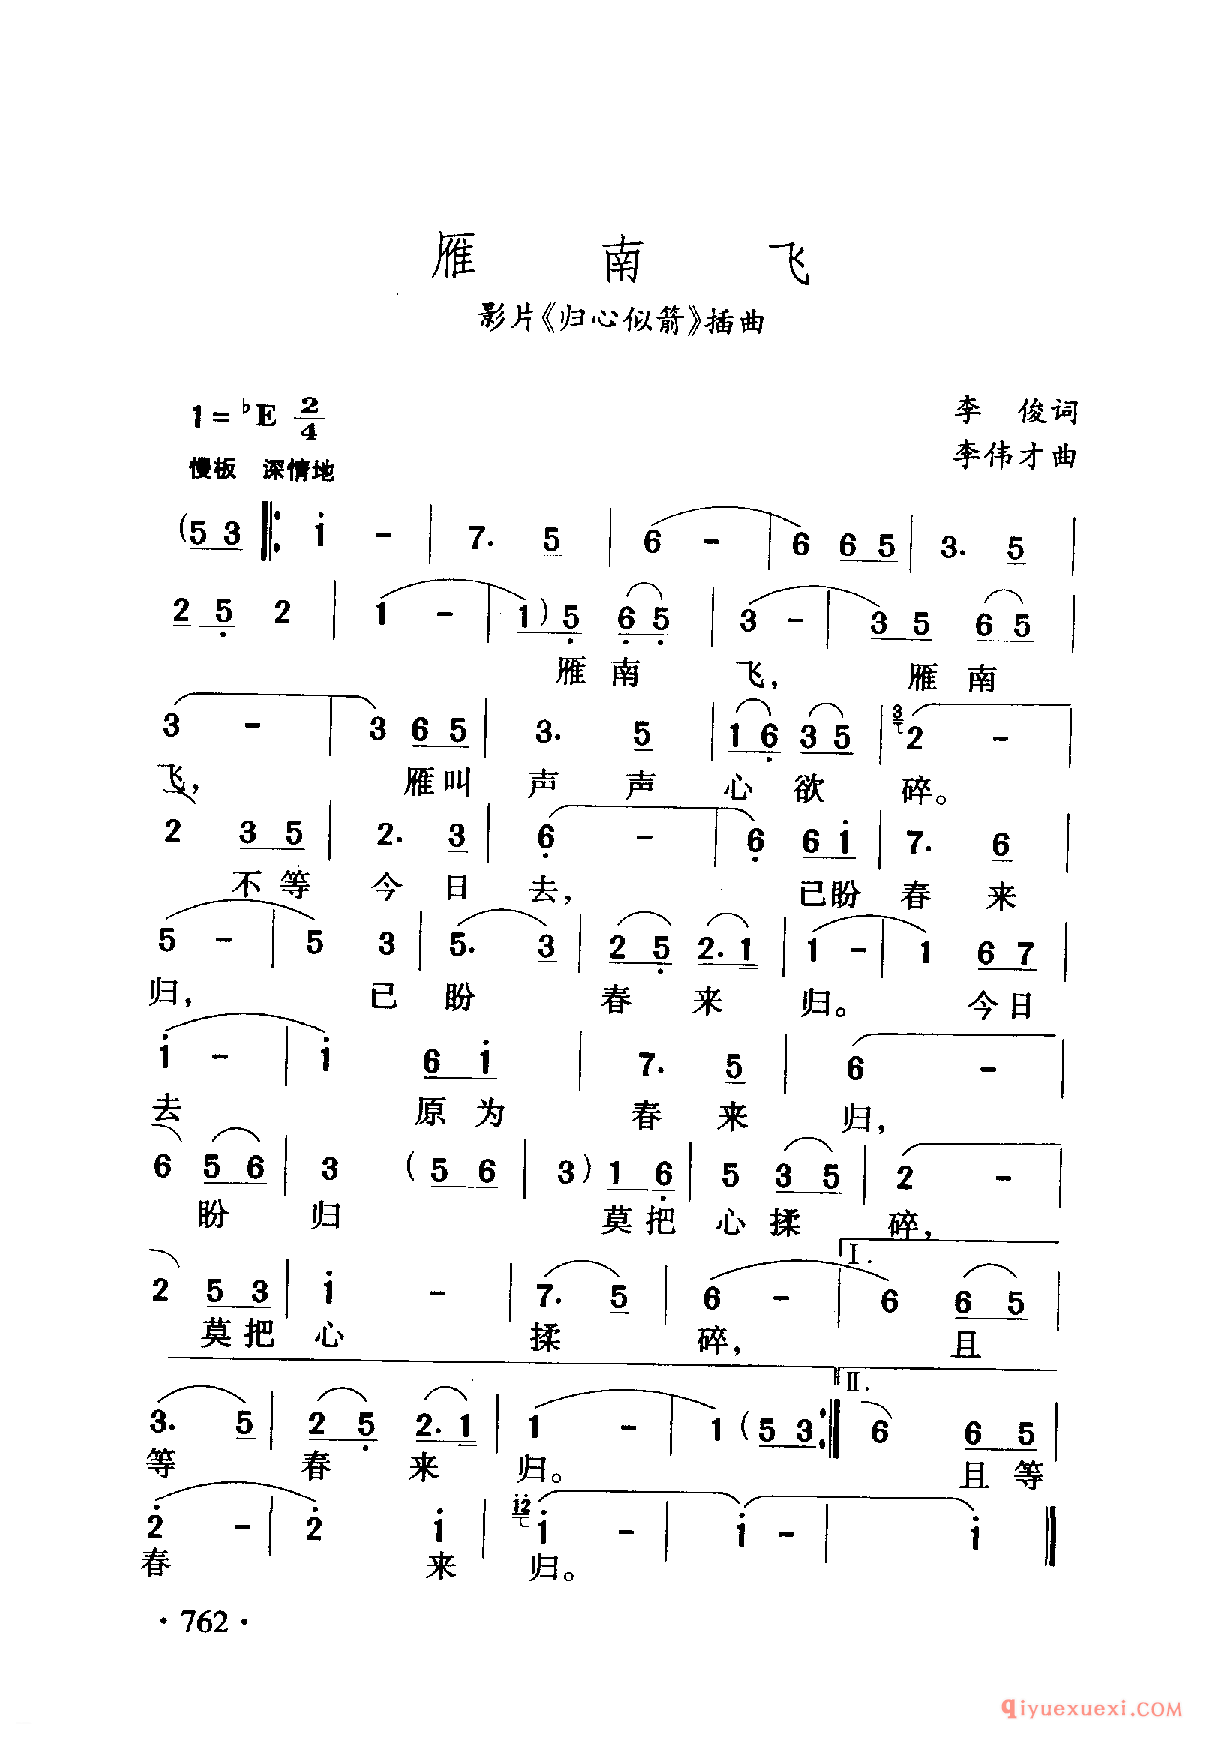 雁 南 飞
影片《归心似箭》插曲
1=♭E 2/4
李 俊词
慢板 深情地
李伟才曲
(5 3 ‖: i - | 7. 5 | 6 - | 6 6 5 | 3. 5 |
2 5 2 | 1 - | 1) 5 6 5 | 3 - | 3 5 6 5 |
雁 南 飞, 雁 南
3 - | 3 6 5 | 3. 5 | 1 6 3 5 | 3 2 - |
飞, 雁叫 声 声 心 欲 碎。
2 3 5 | 2. 3 | 6 - | 6 6 i | 7. 6
不 等 今 日 去, 已盼 春 来
5 - | 5 3 | 5. 3 | 2 5 2. 1 | 1 - | 1 6 7 |
归, 已 盼 春 来 归。 今日
i - | i 6 i | 7. 5 | 6 - |
去 原 为 春 来 归,
6 5 6 | 3 (5 6 | 3) 1 6 | 5 3 5 | 2 - |
盼 归 莫 把 心 揉 碎,
I.
2 5 3 | i - | 7. 5 | 6 - | 6 6 5 |
莫 把 心 揉 碎, 且
II.
3. 5 | 2 5 2. 1 | 1 - | 1 (5 3 :‖ 6 6 5 |
等 春 来 归。 且 等
2 - | 2 i | i2 i - | i - | i ‖
春 来 归。
·762·
qiyuexuexi.COM